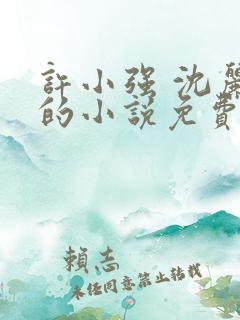 許小强 沈麗
的小說免費
賴志
未經同意禁止轉載